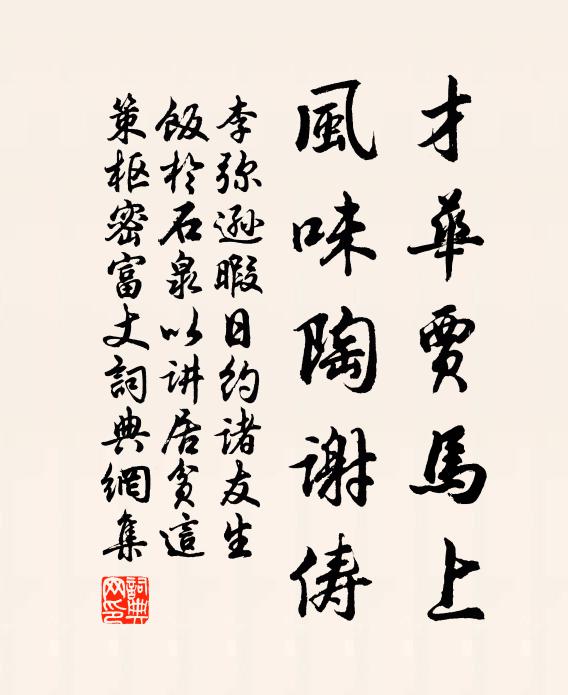 才華賈馬上
風味陶謝儔
李弥遜暇日約諸友生
飯於石泉以讲居贫這
策枢密富丈詞典網集
詞典网印